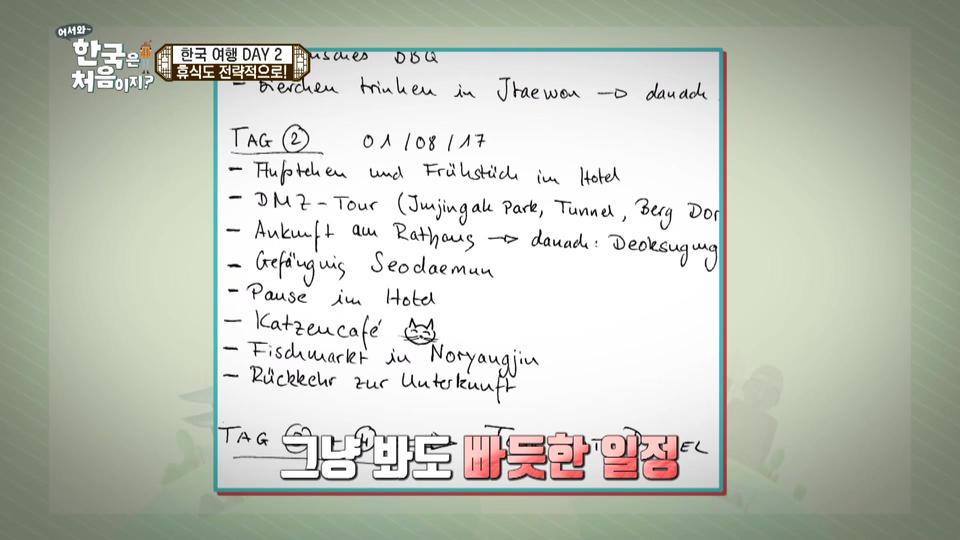 어서와~
한국은
처음이지?
한국 여행 DAY 2
휴식도 전략적으로!
BBQ
- Bierchen trinken in Itaewon → danach
TAG ② 01/08/17
- Aufstehen und Frühstück im Hotel
- DMZ-Tour (Imjingak Park, Tunnel, Berg Dor
- Ankunft am Rathaus → danach: Deoksugung
- Gefängnis Seodaemun
- Pause im Hotel
- Katzencafé
- Fischmarkt in Noryangjin
- Rückkehr zur Unterkunft
TAG
그냥 봐도 빠듯한 일정